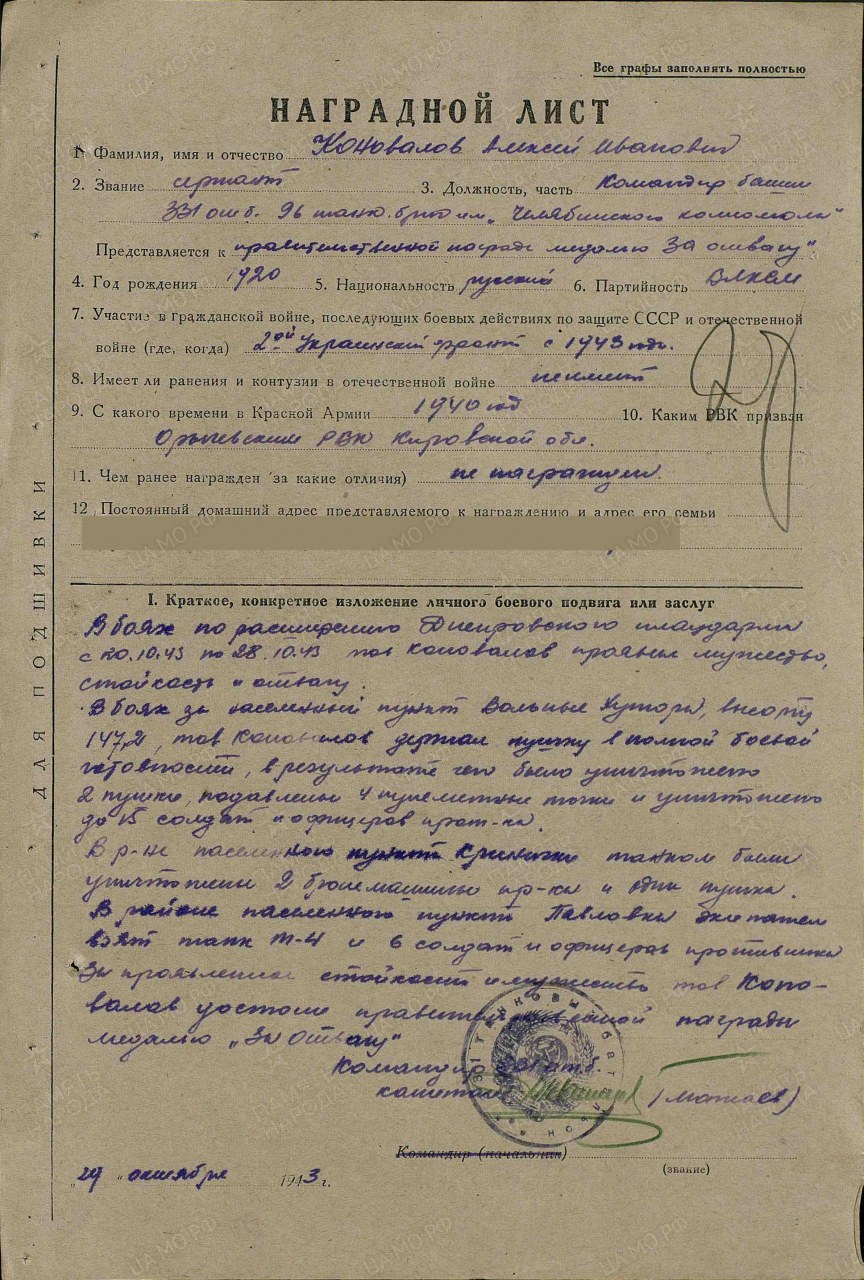 Все графы заполнять полностью
НАГРАДНОЙ ЛИСТ
1. Фамилия, имя и отчество Коновалов Алексей Иванович
2. Звание сержант 3. Должность, часть Командир башни
331 отб. 96 танк. бриг им „Челябинского комсомола“
Представляется к правительственной награде медалью За отвагу“
4. Год рождения 1920 5. Национальность русский 6. Партийность ВЛКСМ
7. Участие в гражданской войне, последующих боевых действиях по защите СССР и отечественной
войне (где, когда) 2ой Украинский фронт с 1943 года.
8. Имеет ли ранения и контузии в отечественной войне не имеет
9. С какого времени в Красной Армии 1940 год 10. Каким РВК призван
Оричевским РВК Кировской обл.
11. Чем ранее награжден (за какие отличия) не награжден.
12 Постоянный домашний адрес представляемого к награждению и адрес его семьи
ДЛЯ ПОДШИВКИ
I. Краткое, конкретное изложение личного боевого подвига или заслуг
В боях по расширению Днепровского плацдарма
с 20.10.43 по 28.10.43 тов Коновалов проявил мужество,
стойкость и отвагу.
В боях за населенный пункт Вольные Хутора, высоту
147,2, тов Коновалов держал пушку в полной боевой
готовности, в результате чего было уничтожено
2 пушки, подавлены 4 пулеметные точки и уничтожено
до 15 солдат и офицеров прот-ка.
В р-не населенного пункта Кринички танком были
уничтожены 2 пр-ка и одна пушка.
В районе населенного пункта Павловка экипажем
взят танк Т-4 и 6 солдат и офицеров противника
За проявленное стойкость и мужество тов Коно-
валов удостоен правительственной награды
медалью „За Отвагу“
Командир 331 отб.
капитан (Матаев)
Командир (начальник)
(звание)
„29 „ октября 1943 г.
ЦАМО.РФ